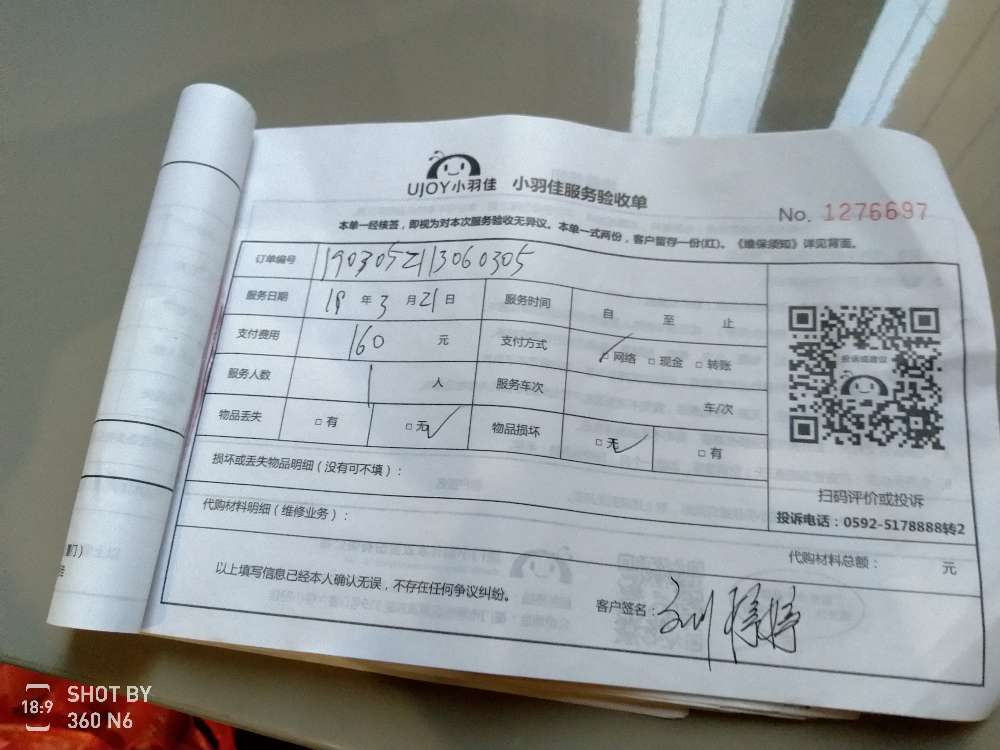 UJOY小羽佳 小羽佳服务验收单
No. 1276697
本单一经核签，即视为对本次服务验收无异议。本单一式两份，客户留存一份(红)。《维保须知》详见背面。
订单编号 1903052113060305
服务日期 19 年 3 月 21 日 服务时间 自 至 止
支付费用 160 元 支付方式 □网络 □现金 □转账
服务人数 1 人 服务车次 车/次
物品丢失 □有 □无 物品损坏 □无 □有
损坏或丢失物品明细（没有可不填）：
代购材料明细（维修业务）：
投诉或建议
扫码评价或投诉
投诉电话：0592-5178888转2
代购材料总额： 元
以上填写信息已经本人确认无误，不存在任何争议纠纷。
客户签名：刘婷婷
18:9 SHOT BY
360 N6